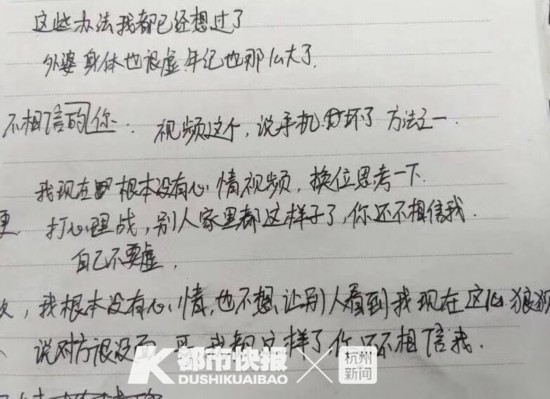 这些办法我都已经想过了
外婆身体也很虚 年纪也那么大了
不相信的你.. 视频这个,说手机 坏了 方法之一.
我现在 根本没有心情视频,换位思考一下.
更 打心理战,别人家里都这样子了,你还不相信我.
自己不要虚,
我根本没有心情,也不想让别人看到我现在这么狼狈
说对方很没 我都这样了你还不相信我.
都市快报
DUSHIKUAIBAO
杭州
新闻